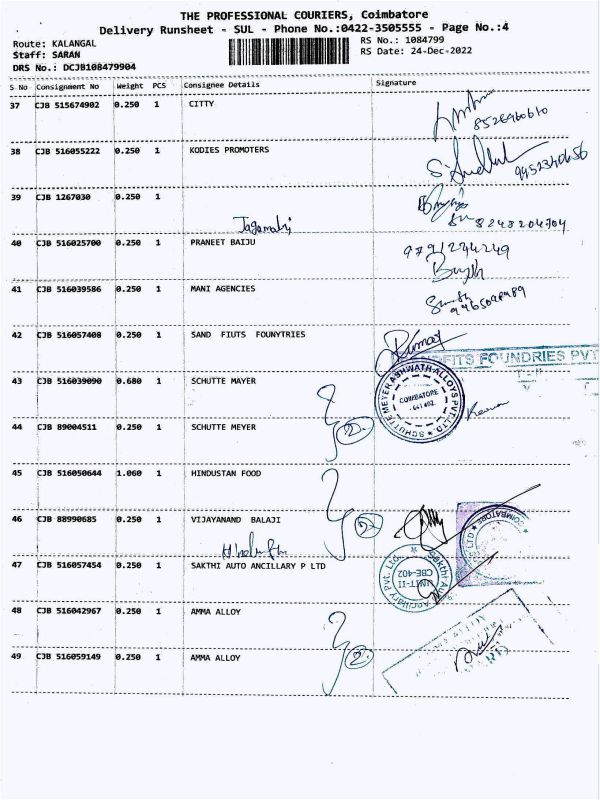 THE PROFESSIONAL COURIERS, Coimbatore
Delivery Runsheet - SUL - Phone No.:0422-3505555 - Page No.:4
Route: KALANGAL
Staff: SARAN
DRS No.: DCJB108479904
RS No.: 1084799
RS Date: 24-Dec-2022
S No Consignment No Weight PCS Consignee Details Signature
37 CJB 515674902 0.250 1 CITTY
8526960610
38 CJB 516055222 0.250 1 KODIES PROMOTERS
9952340656
39 CJB 1267030 0.250 1
8248204704
40 CJB 516025700 0.250 1 PRANEET BAIJU
9791244249
41 CJB 516039586 0.250 1 MANI AGENCIES
42 CJB 516057408 0.250 1 SAND FIUTS FOUNYTRIES
Kumar
FOUNDRIES PVT
43 CJB 516039090 0.680 1 SCHUTTE MAYER
SCHUTTE MEYER ASHWATH ALLOYS PVT. LTD.
COIMBATORE
641 402
44 CJB 89004511 0.250 1 SCHUTTE MEYER
2
45 CJB 516050644 1.060 1 HINDUSTAN FOOD
46 CJB 88990685 0.250 1 VIJAYANAND BALAJI
2
COIMBATORE
LTD
47 CJB 516057454 0.250 1 SAKTHI AUTO ANCILLARY P LTD
Sakthi Auto Ancillary Pvt. Ltd.
UNIT-II
CBE-402
48 CJB 516042967 0.250 1 AMMA ALLOY
49 CJB 516059149 0.250 1 AMMA ALLOY
2